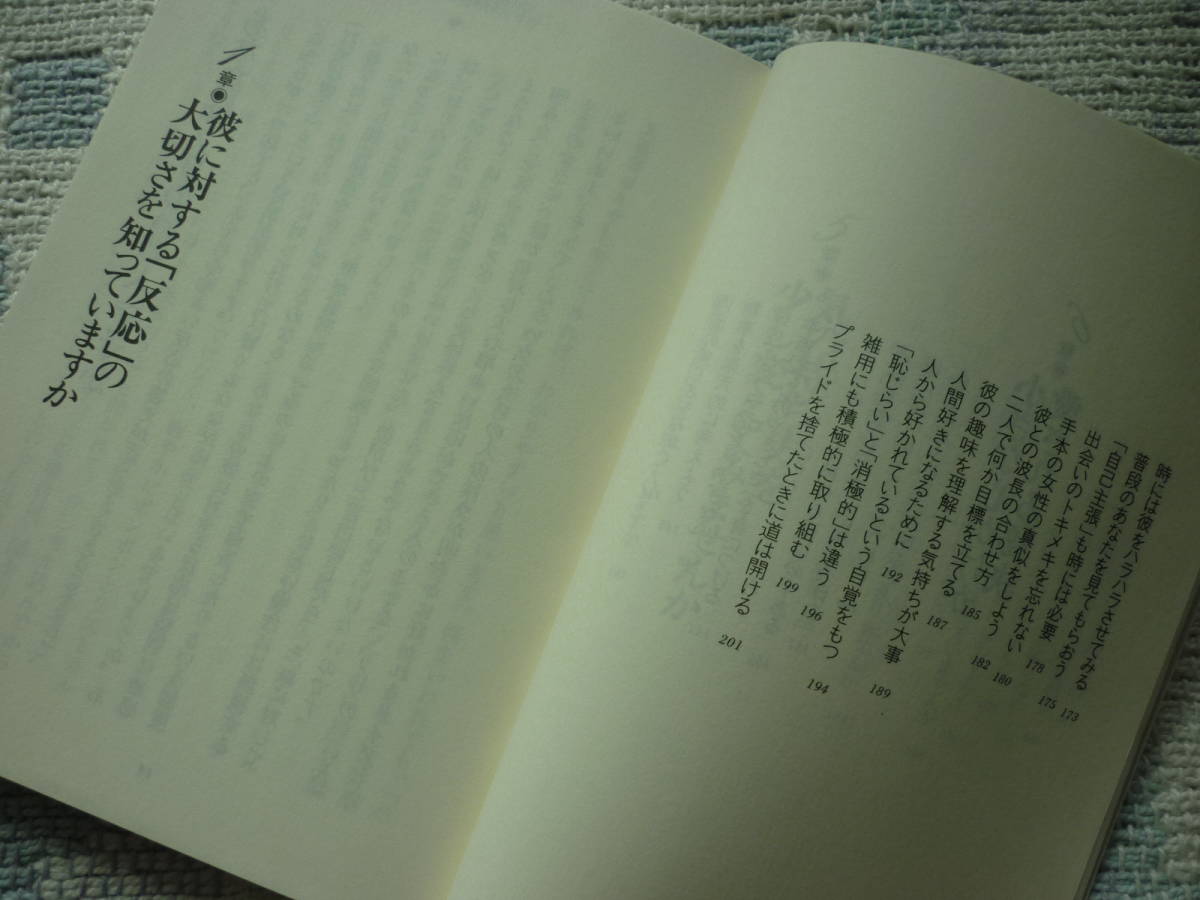 時には彼をハラハラさせてみる 173
普段のあなたを見てもらおう 175
「自己主張」も時には必要 178
出会いのトキメキを忘れない 180
手本の女性の真似をしよう 182
彼との波長の合わせ方 185
二人で何か目標を立てる 187
彼の趣味を理解する気持ちが大事 189
人間好きになるために 192
人から好かれているという自覚をもつ 194
「恥じらい」と「消極的」は違う 196
雑用にも積極的に取り組む 199
プライドを捨てたときに道は開ける 201
1章◉彼に対する「反応」の
大切さを知っていますか